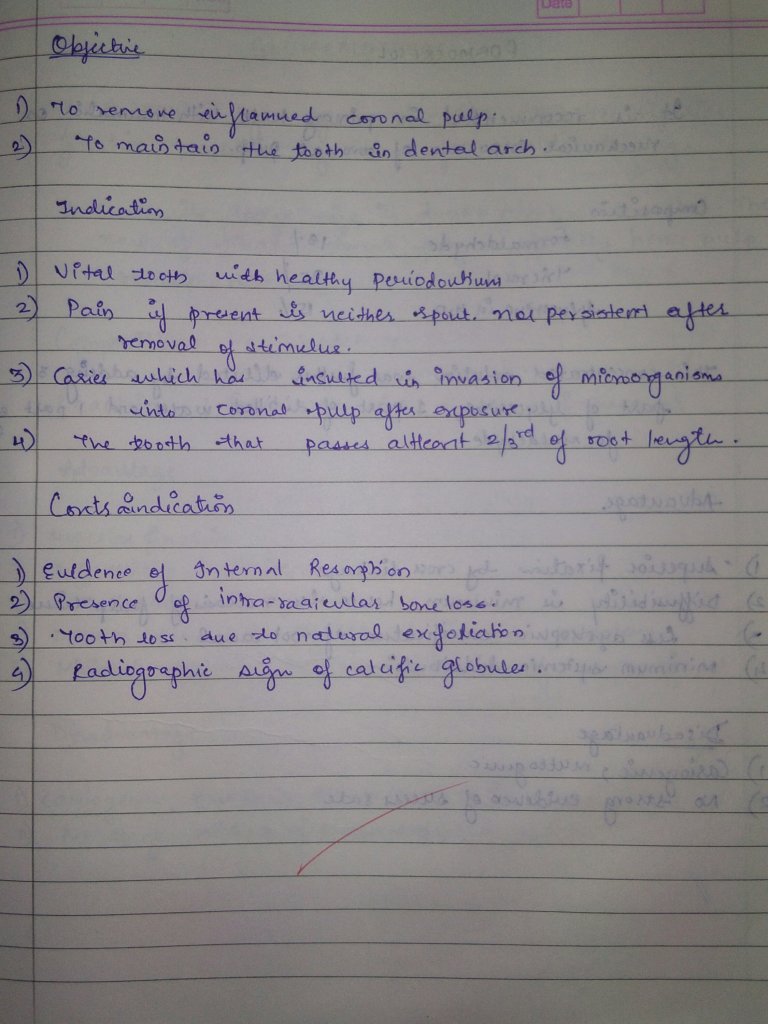 Date
Objective
1) To remove inflammed coronal pulp.
2) To maintain the tooth in dental arch.
Indication
1) Vital tooth with healthy periodontium
2) Pain if present is neither spont. nor persistent after
removal of stimulus.
3) Caries which has insulted in invasion of microorganisms
into coronal pulp after exposure.
4) The tooth that passes atleast 2/3rd of root length.
Contraindication
1) Evidence of Internal Resorption
2) Presence of intra-radicular bone loss.
3) Tooth loss due to natural exfoliation
4) Radiographic sign of calcific globules.